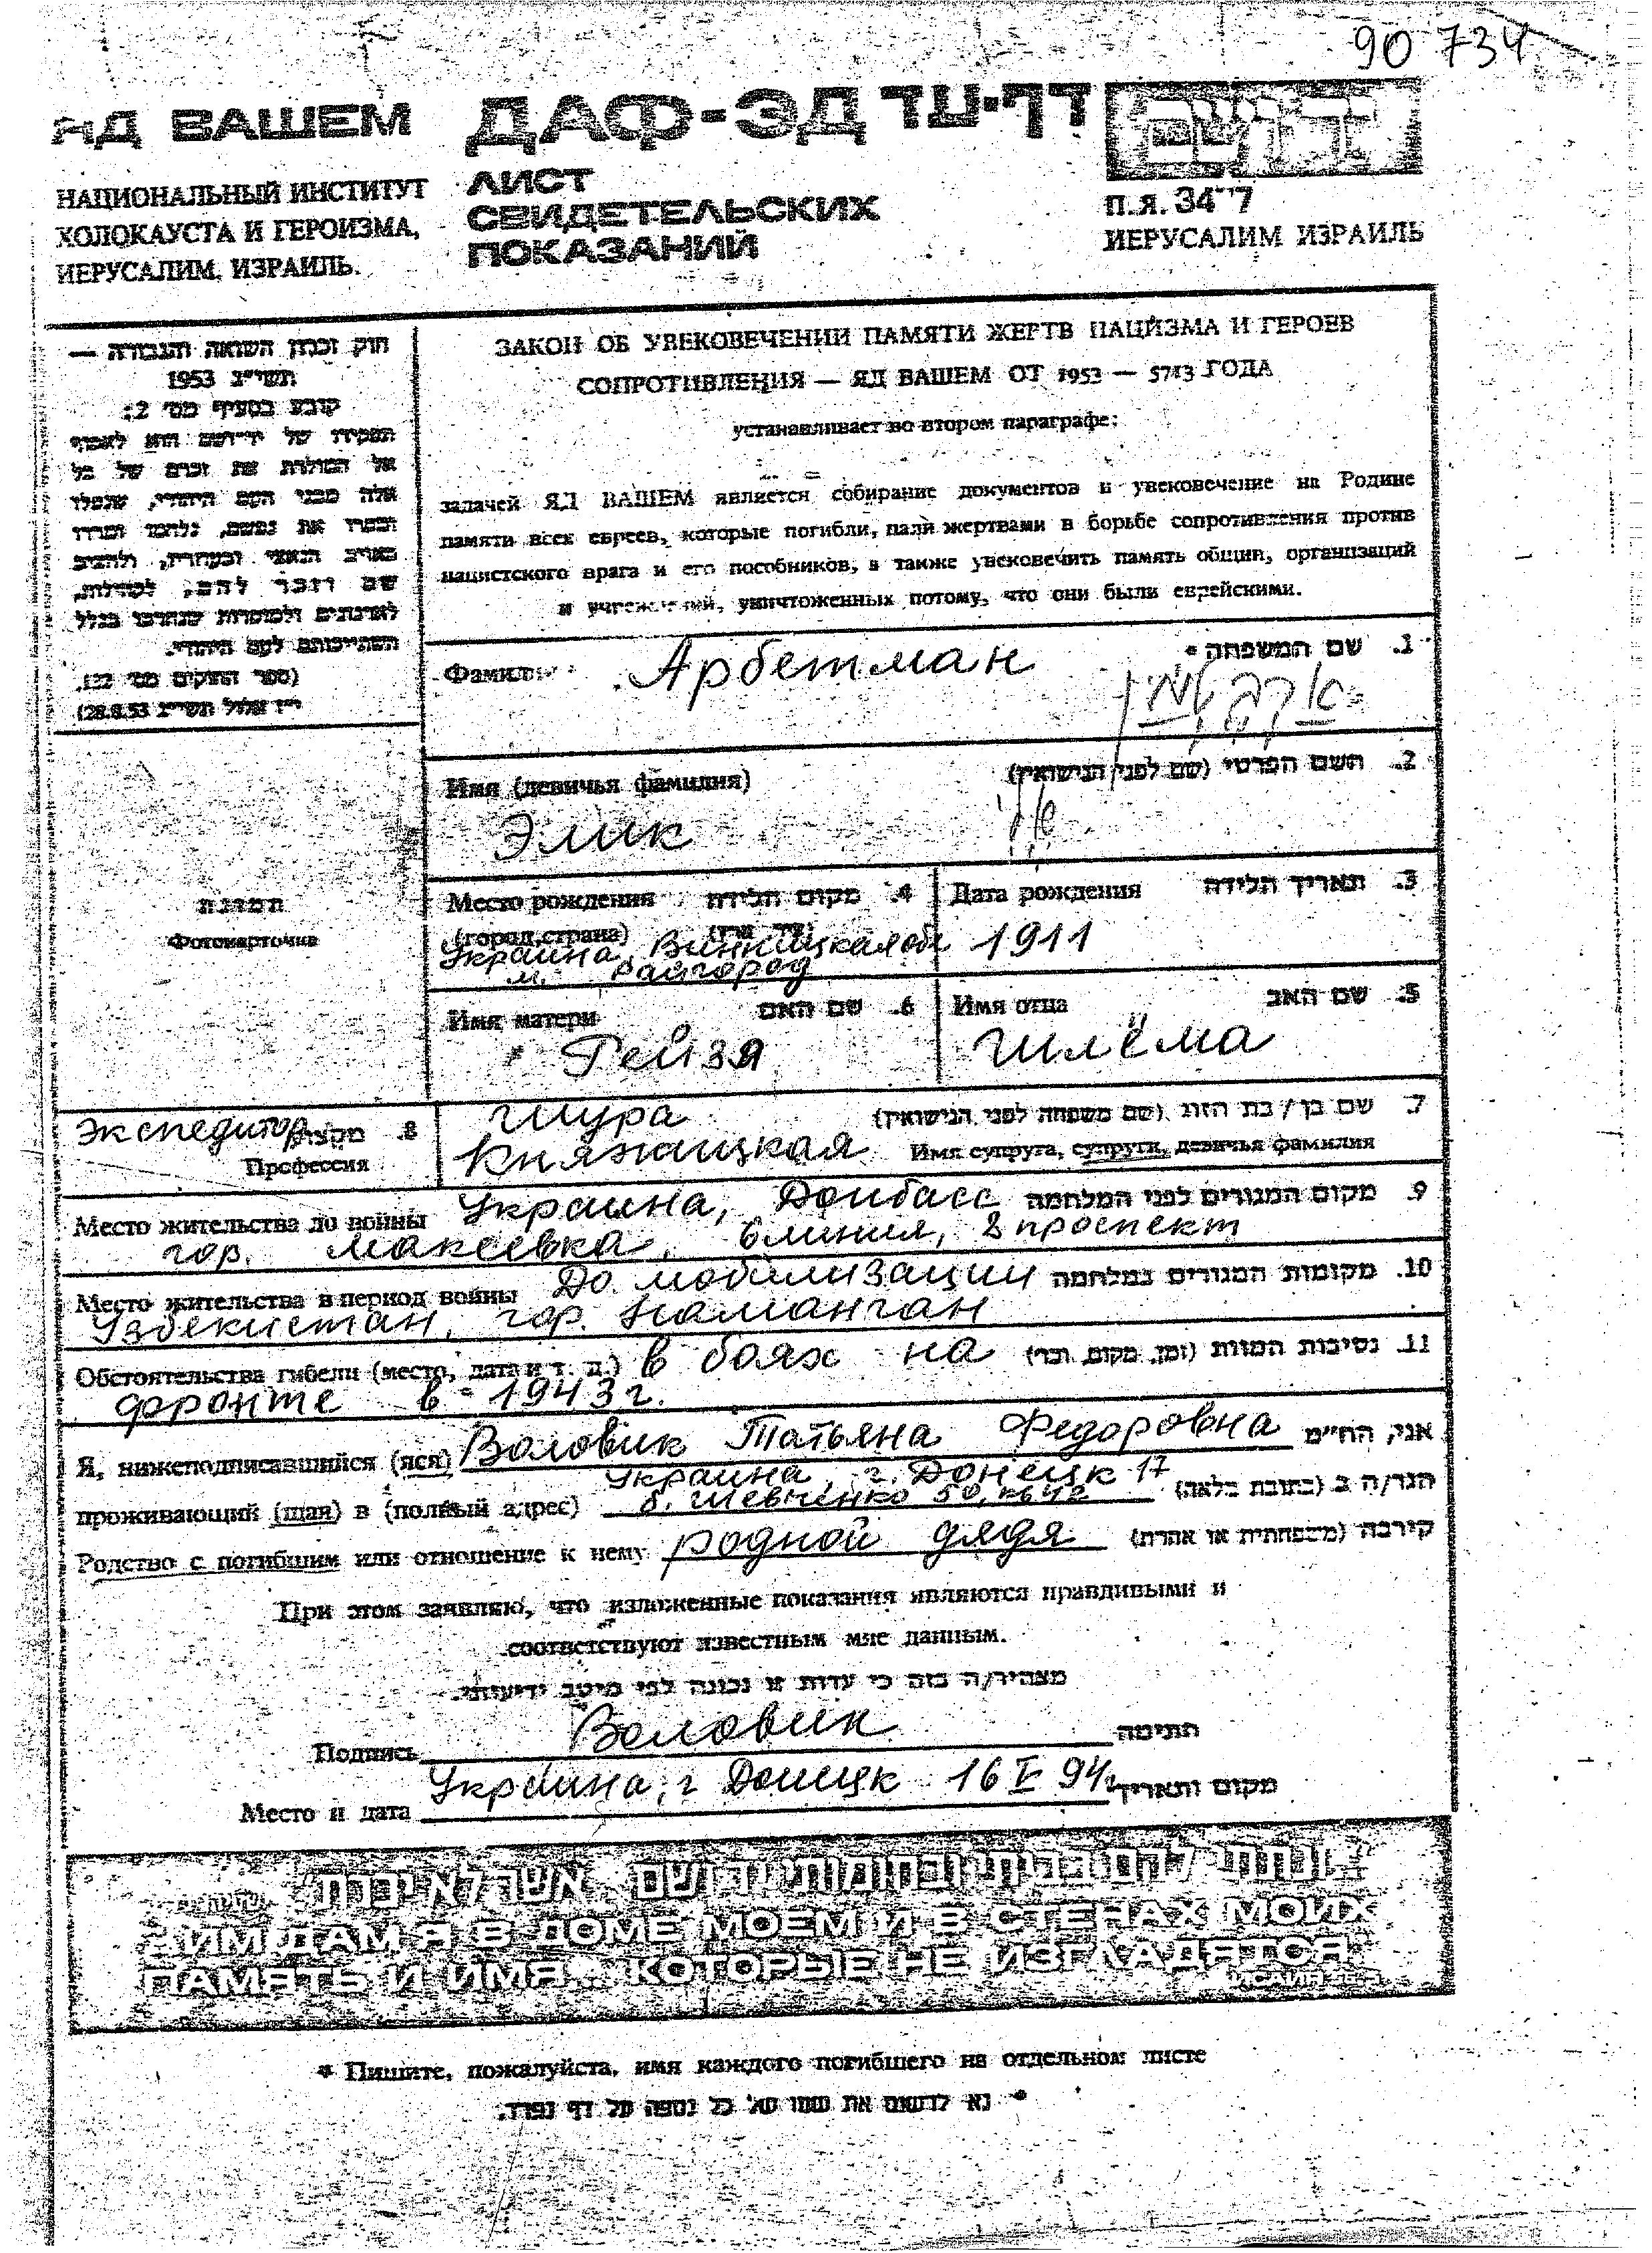 90 734
ЯД ВАШЕМ
ДАФ-ЭД דף-עד
НАЦИОНАЛЬНЫЙ ИНСТИТУТ
ХОЛОКАУСТА И ГЕРОИЗМА,
ИЕРУСАЛИМ, ИЗРАИЛЬ.
ЛИСТ
СВИДЕТЕЛЬСКИХ
ПОКАЗАНИЙ
П.Я. 34
ИЕРУСАЛИМ ИЗРАИЛЬ
חוק זכרון השואה והגבורה —
תשי״ג 1953
קובע בסעיף מס׳ 2:
תפקידו של יד־ושם הוא לאסוף
אל המולדת את זכרם של כל
אלה מבני העם היהודי, שנפלו
ומסרו את נפשם, נלחמו ומרדו
באויב הנאצי ובעוזריו, ולהציב
שם וזכר להם, לקהילות,
לארגונים ולמוסדות שנחרבו בגלל
השתייכותם לעם היהודי.
(ספר החוקים מס׳ 132,
י״ז אלול תשי״ג 28.8.53)
ЗАКОН ОБ УВЕКОВЕЧЕНИИ ПАМЯТИ ЖЕРТВ НАЦИЗМА И ГЕРОЕВ
СОПРОТИВЛЕНИЯ — ЯД ВАШЕМ ОТ 1953 — 5713 ГОДА
устанавливает во втором параграфе:
задачей ЯД ВАШЕМ является собирание документов и увековечение на Родине
памяти всех евреев, которые погибли, пали жертвами в борьбе сопротивления против
нацистского врага и его пособников, а также увековечить память общин, организаций
и учреждений, уничтоженных потому, что они были еврейскими.
Фамилия Арбетман 1. שם המשפחה *
ארבטמן
Имя (девичья фамилия) 2. השם הפרטי (שם לפני הנישואין)
Элик
תמונה
Фотокарточка
Место рождения 4. מקום הלידה
(город, страна)
Украина, Винницкая обл
м. Райгород
Дата рождения 3. תאריך הלידה
1911
Имя матери 6. שם האם
Рейзя
Имя отца 5. שם האב
Шлёма
Экспедитор 8. מקצוע
Профессия
Шура 7. שם בן / בת הזוג (שם משפחה לפני הנישואין)
Княжицкая Имя супруга, супруги, девичья фамилия
Место жительства до войны Украина, Донбасс 9. מקום המגורים לפני המלחמה
гор. Макеевка, 6 линия, 2 проспект
Место жительства в период войны До мобилизации 10. מקומות המגורים במלחמה
Узбекистан, гор. Наманган
Обстоятельства гибели (место, дата и т. д.) в боях на 11. נסיבות המוות (זמן, מקום, וכו׳)
фронте в 1943 г.
Я, нижеподписавшийся (яся) Воловик Татьяна Федоровна אני, הח״מ
Украина, г. Донецк 17
проживающий (щая) в (полный адрес) б. Шевченко 50, кв 42 הגר/ה ב (כתובת מלאה)
Родство с погибшим или отношение к нему родной дядя קירבה (משפחתית או אחרת)
При этом заявляю, что изложенные показания являются правдивыми и
соответствуют известным мне данным.
מצהיר/ה בזה כי עדות זו נכונה לפי מיטב ידיעותי.
Подпись Воловик חתימה
Место и дата Украина, г Донецк 16 V 94г. מקום ותאריך
ונתתי להם בביתי ובחומותי יד ושם אשר לא יכרת
ИМ ДАМ Я В ДОМЕ МОЕМ И В СТЕНАХ МОИХ
ПАМЯТЬ И ИМЯ... КОТОРЫЕ НЕ ИЗГЛАДЯТСЯ.
* Пишите, пожалуйста, имя каждого погибшего на отдельном листе
* נא לרשום את שמו של כל נספה על דף נפרד.